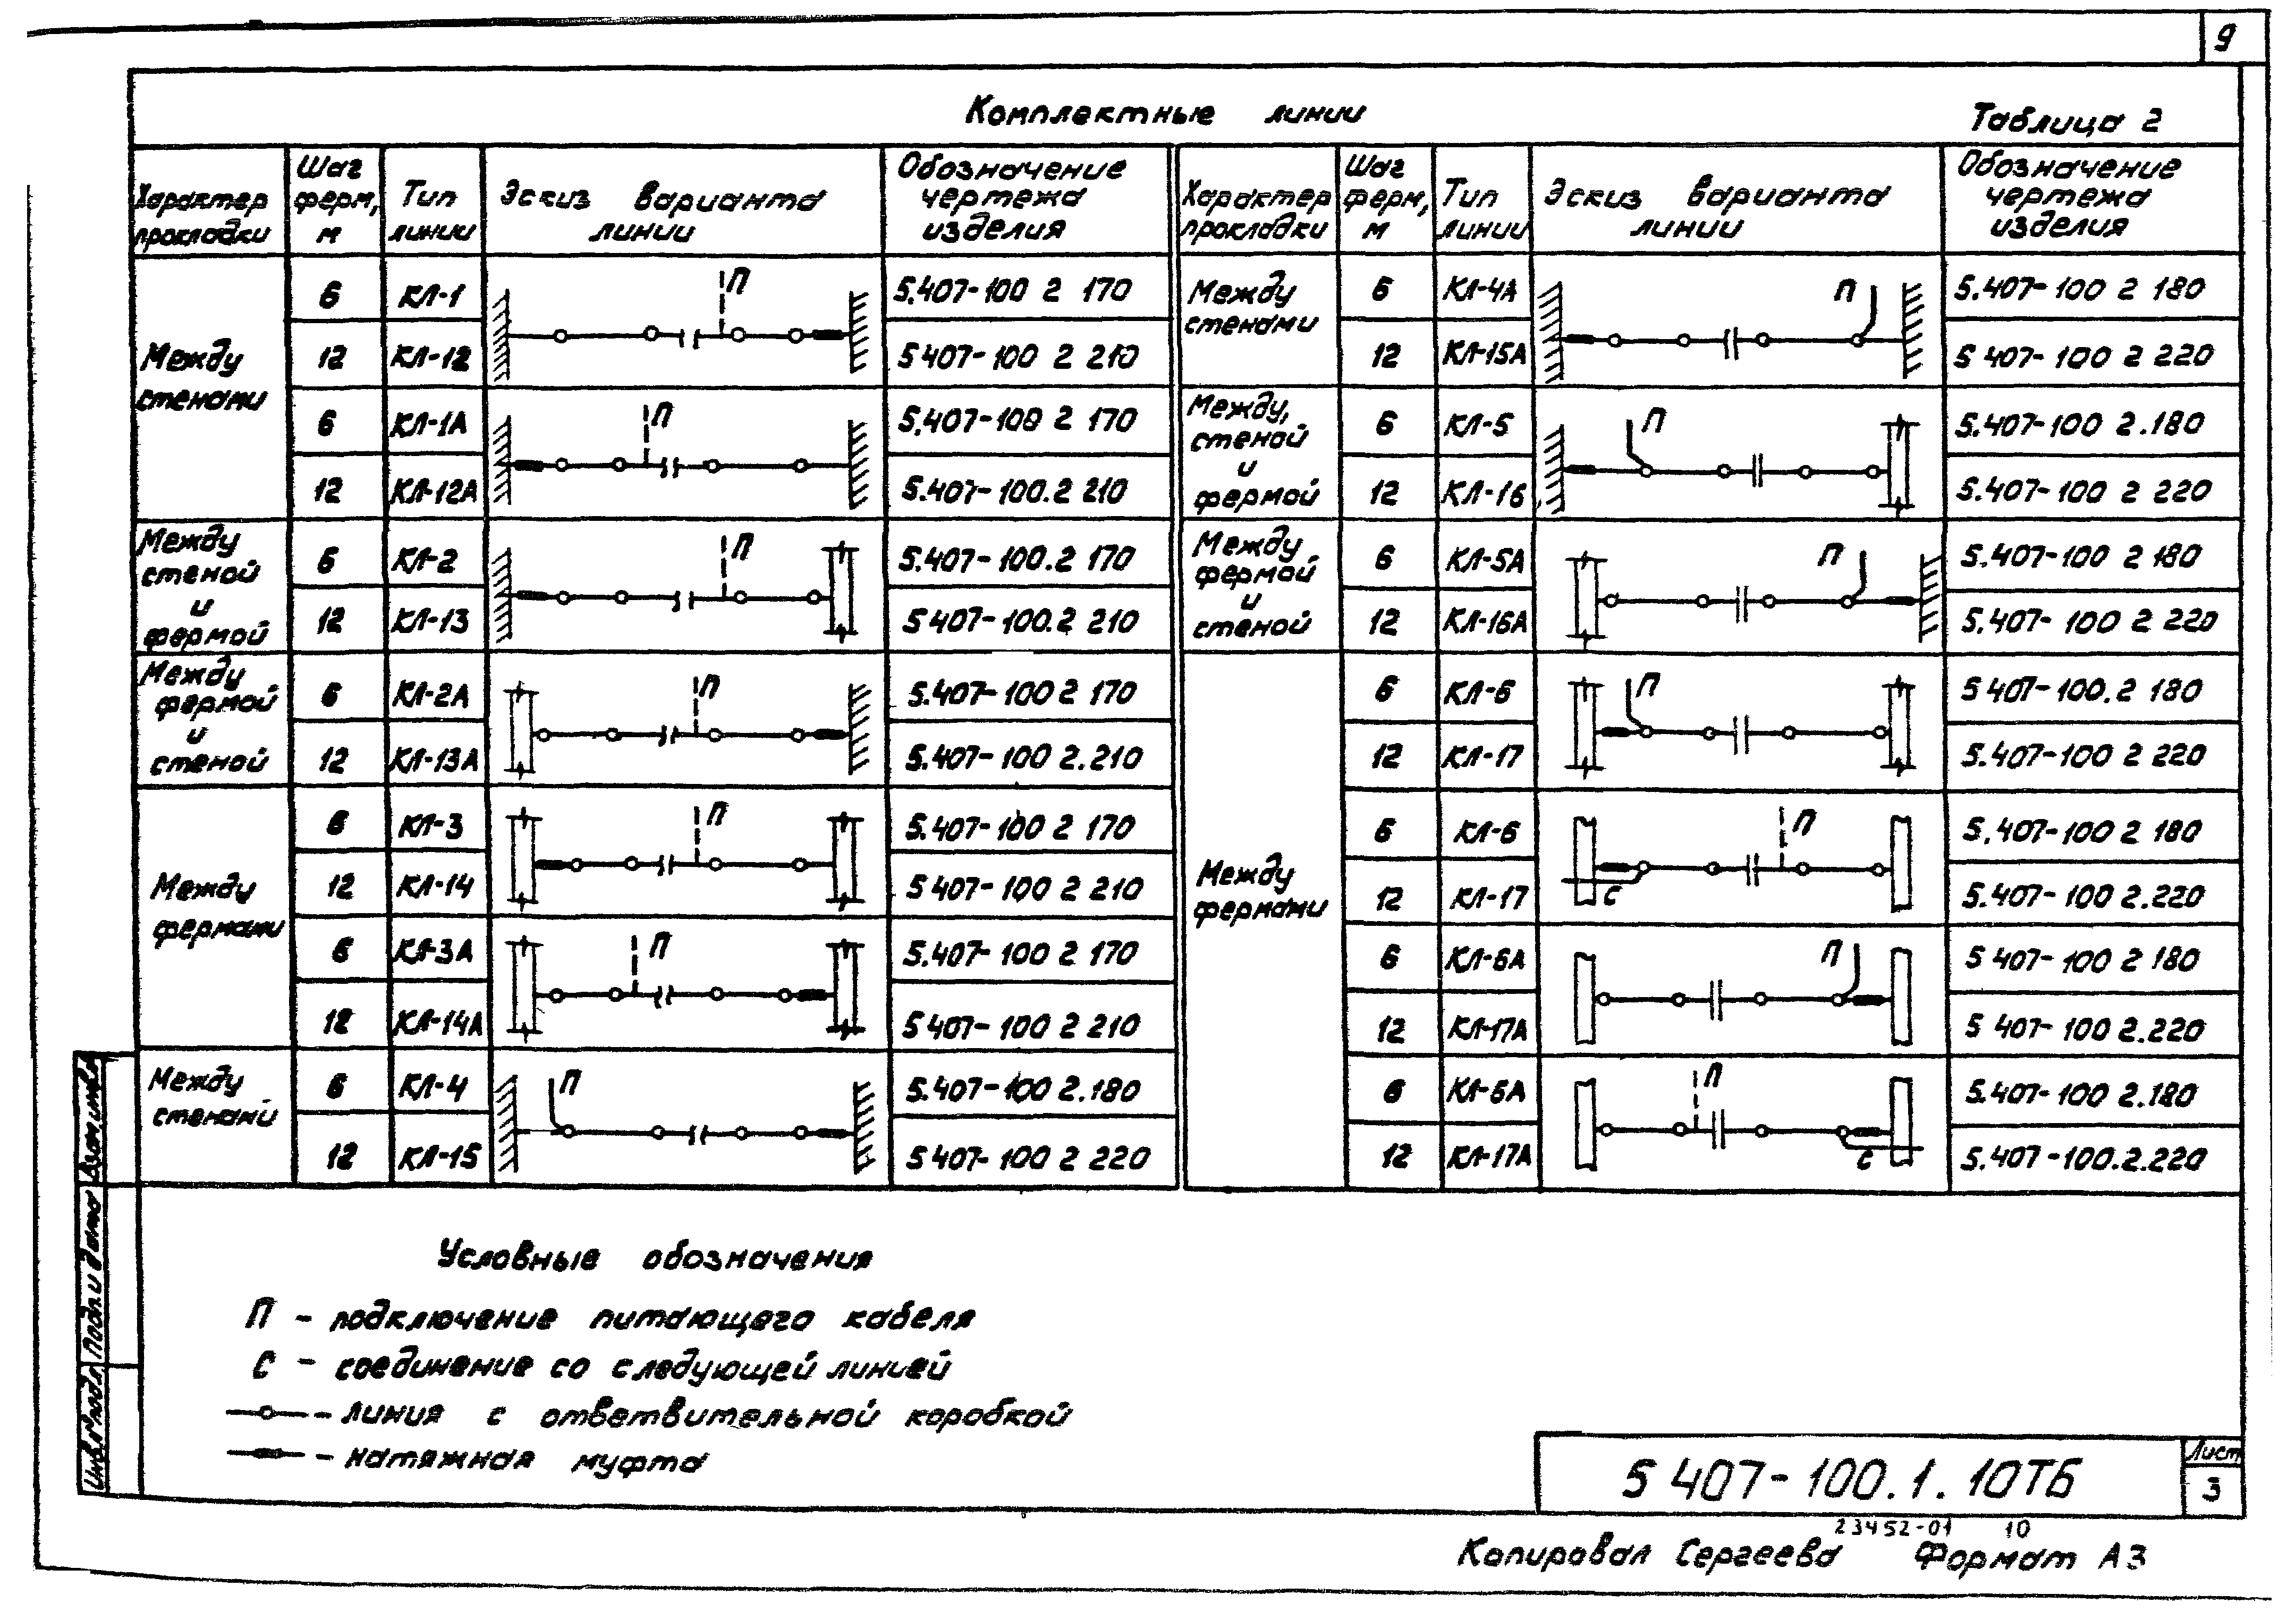 9
Комплектные линии
Таблица 2
Характер прокладки
Шаг ферм, м
Тип линии
Эскиз варианта линии
Обозначение чертежа изделия
Между стенами
6 КЛ-1 П 5.407-100 2 170
12 КЛ-12 5 407-100 2 210
6 КЛ-1А П 5.407-100 2 170
12 КЛ-12А 5.407-100.2 210
Между стеной и фермой
6 КЛ-2 П 5.407-100.2 170
12 КЛ-13 5 407-100.2 210
Между фермой и стеной
6 КЛ-2А П 5.407-100 2 170
12 КЛ-13А 5.407-100 2.210
Между фермами
6 КЛ-3 П 5.407-100 2 170
12 КЛ-14 5 407-100 2 210
6 КЛ-3А П 5.407-100 2 170
12 КЛ-14А 5 407-100 2 210
Между стенами
6 КЛ-4 П 5.407-100 2.180
12 КЛ-15 5 407-100 2 220
Характер прокладки
Шаг ферм, м
Тип линии
Эскиз варианта линии
Обозначение чертежа изделия
Между стенами
6 КЛ-4А П 5.407-100 2 180
12 КЛ-15А 5 407-100 2 220
Между, стеной и фермой
6 КЛ-5 П 5.407-100 2.180
12 КЛ-16 5.407-100 2 220
Между фермой и стеной
6 КЛ-5А П 5.407-100 2 180
12 КЛ-16А 5.407-100 2 220
Между фермами
6 КЛ-6 П 5 407-100.2 180
12 КЛ-17 5.407-100 2 220
6 КЛ-6 П 5.407-100 2 180
12 КЛ-17 С 5.407-100 2.220
6 КЛ-6А П 5 407-100 2 180
12 КЛ-17А 5 407-100 2.220
6 КЛ-6А П 5.407-100 2.180
12 КЛ-17А С 5.407-100.2.220
Условные обозначения
П - подключение питающего кабеля
С - соединение со следующей линией
- линия с ответвительной коробкой
- натяжная муфта
Инв.№ подл. Подп. и дата Взам. инв.№
5 407-100.1.10ТБ
Лист
3
23452-01 10
Копировал Сергеева Формат А3